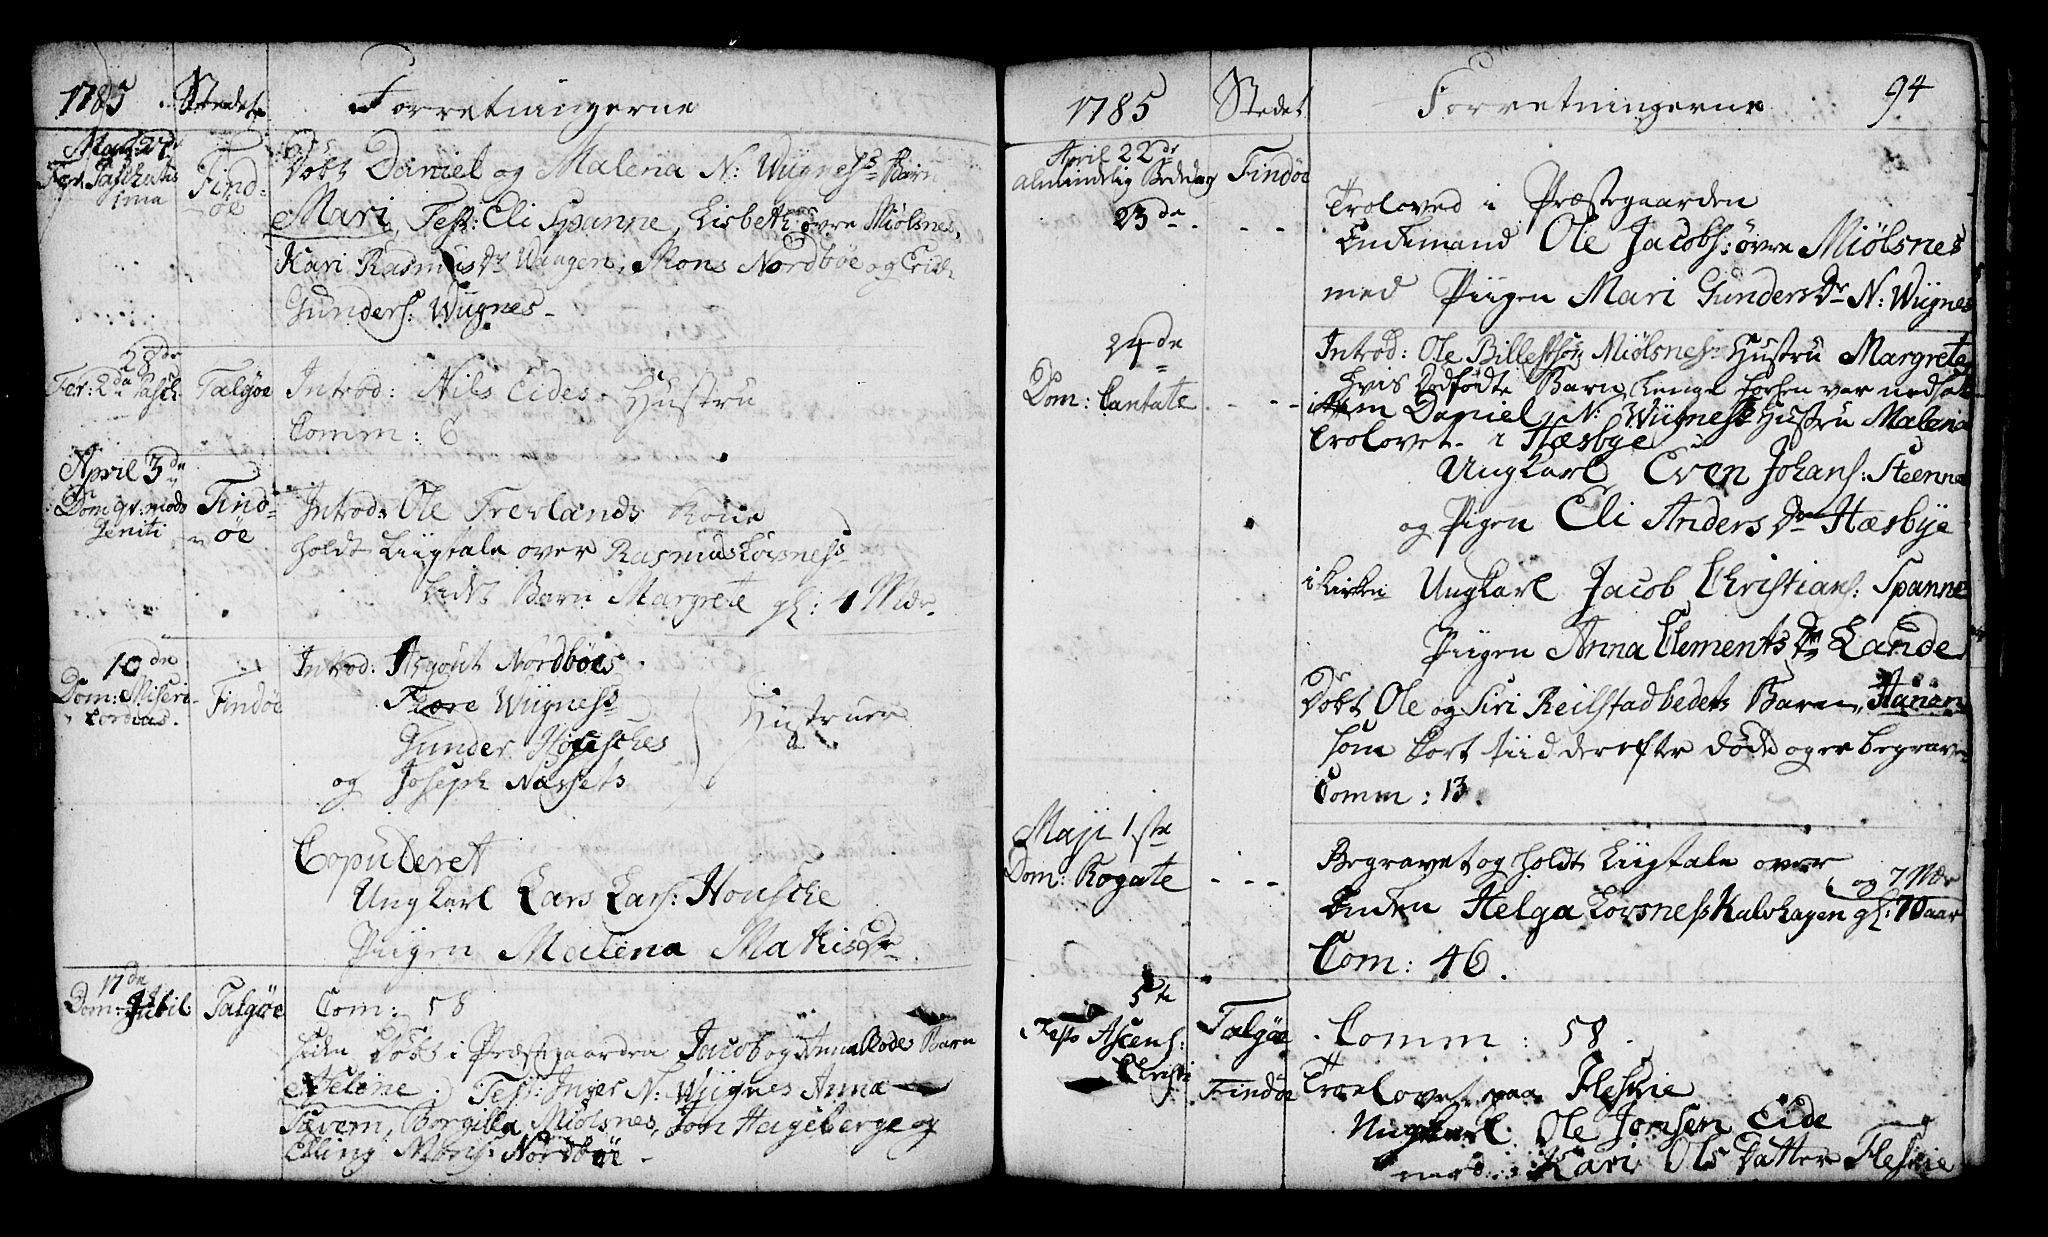 1785 Stedet Forretningerne
Mart: 27de Find=
Fer. Paschatis øe
1ma
Døbt Daniel og Malena N: Wiignes's Barn
Mari, Test: Eli Spanne, Lisbeth øvre Miølsnes,
Kari Rasmus Dr Waagen, Mons Nordbøe og Erich
Gunders: Wiignes
28de
Fer: 2da Pasch: Talgøe Introd: Nils Eides Hustru
Comm: 6
April 3de
Dom: qv: modo Find=
Geniti øe
Introd: Ole Frerlands Kone
holdt Liigtale over Rasmus Lovsness
Liden Barn Margrete gl: 4 Mdr
10de
Dom: Miseri- Findøe
cordias.
Introd: Asgout Nordbøes
Thore Wiigness
Gunder Housches Hustruer
og Joseph Næssets
Copuleret
Ungkarl Lars Lars: Houschie
Piigen Malena Mathis Dr.
17de
Dom: Jubil Talgøe Com: 58
siden døbt i Præstegaarden Jacob og Anna Rodes Barn
Helene. Test: Inger N: Wiignes Anna
Torgilla Miølsnes, Jon Hageberge og
Elling Mons: Nordbøe
1785 Stedet Forretningerne 94
April 22de
Almindelig Bededag Findøe
23de - - -
Troloved i Præstegaarden
Enkemand Ole Jacobs: øvre Miølsnes
med Piigen Mari Gunders Dr N: Wiignes
24de
Dom: Cantate - - -
Introd: Ole Billestson Miølsnes Hustru Margrete
hvis dødfødte Barn
item Daniel N: Wiigness Hustru Malena
Trolovet i Hæsbye
Ungkarl Even Johans: Steenna
og Pigen Eli Anders Dr Hæsbye
i Kirken Ungkarl Jacob Christians: Spanne
Piigen Anna Clements Dr Lande
Døbt Ole og Siri Reilstadbedets Barn, Hanen
som kort tiid derefter døde og er begravet
Comm: 13.
Maji 1ste
Dom: Rogate - - -
Begravet og holdt Liigtale over
Enken Helga Lovsness Kalvhagen gl: 70 aar
og 7 Mdr
Com: 46.
5te
Festo Ascens: Talgøe Comm: 58.
Christi
Findøe Trolovet paa Fleskie
Ungkarl Ole Jonsen Eide
med Kari Ols Datter Fleskie